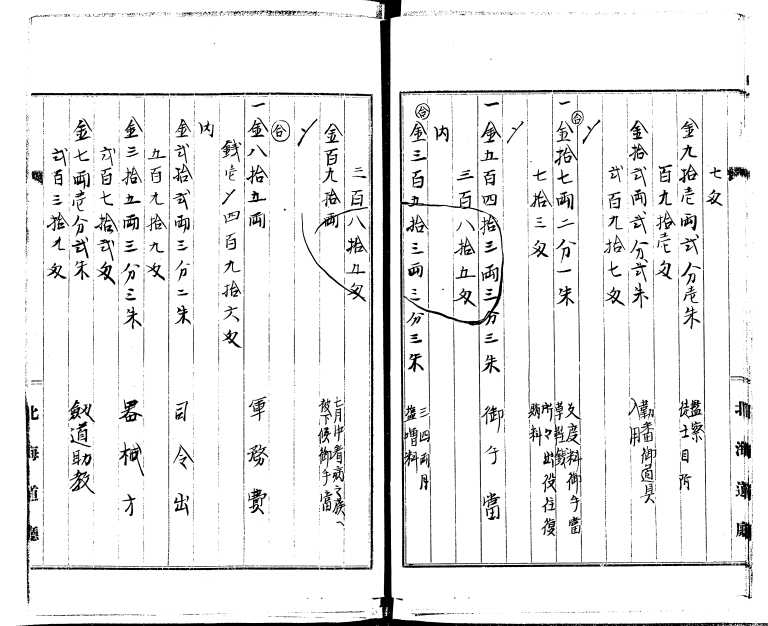 七匁
金九拾壱両弐分壱朱
監察
徒士目附
百九拾壱匁
金拾弐両弐分弐朱
勤番御道具
入用
弐百九拾七匁
〆
一㊎金拾七両二分一朱
支度料御手当
草鞋銭
所々出役往復
賄料
七拾三匁
〆
一金五百四拾三両三分三朱
御手当
三百八拾五匁
内
㊎金三百五拾三両三分三朱
三四両月
塩噌料
三百八拾五匁
金百九拾両
七月中有病之族へ
被下候御手当
〆
㊎
一金八拾五両
軍務費
銭壱〆四百九拾六匁
内
金弐拾弐両三分二朱
司令出
五百九拾九匁
金三拾五両三分三朱
器械方
弐百七拾弐匁
金七両壱分弐朱
剱道助教
弐百三拾九匁
北海道廳
北海道廳